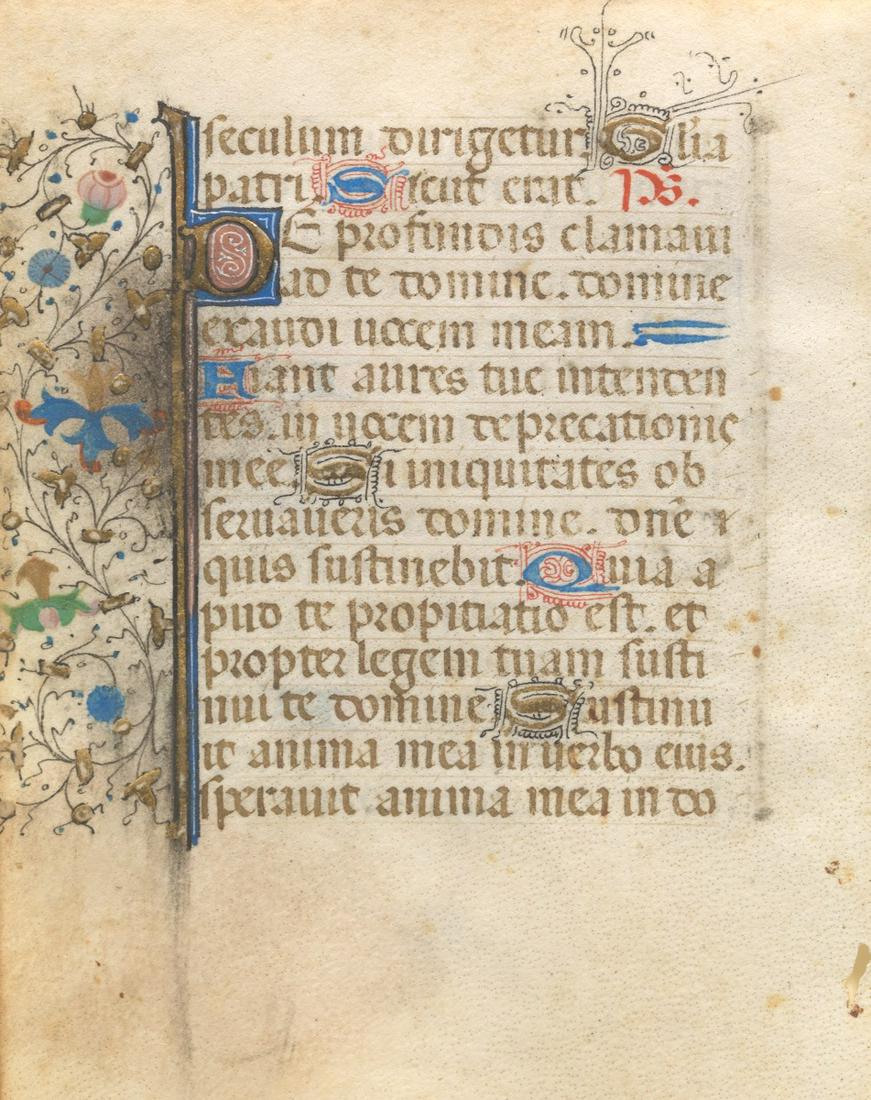 seculum dirigetur Glia
patri Sicut erat. Ps.
DE profundis clamaui
ad te domine. domine
exaudi uocem meam.
Fiant aures tue intenden
tes. in uocem deprecationis
mee Si iniquitates ob
seruaueris domine. dn̄e
quis sustinebit. Quia a
pud te propitiatio est. et
propter legem tuam susti
nui te domine Sustinu
it anima mea in uerbo eius.
sperauit anima mea in do